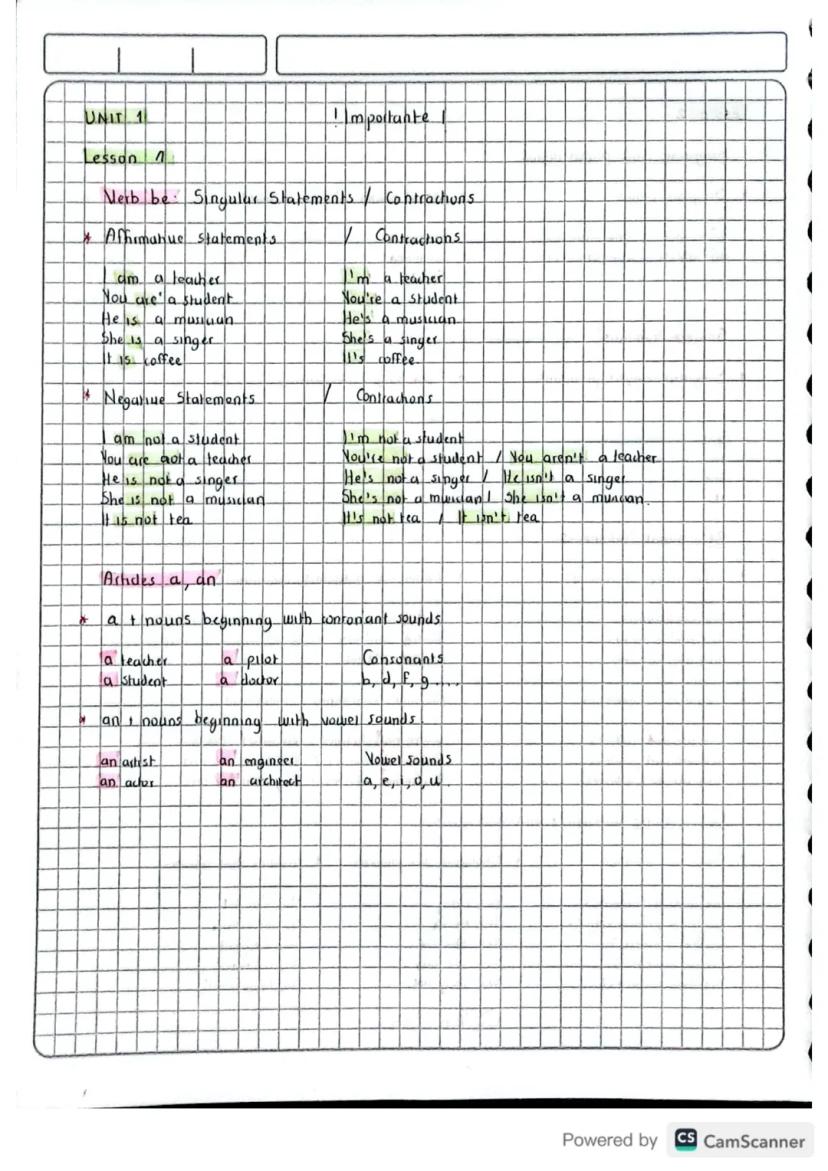 UNIT 1 ! Importante !
Lesson 1
Verb be: Singular Statements / Contractions
* Affirmative statements / Contractions
I am a teacher I'm a teacher
You are a student You're a student
He is a musician He's a musician
She is a singer She's a singer
It is coffee It's coffee
* Negative Statements / Contractions
I am not a student I'm not a student
You are not a teacher You're not a student / You aren't a teacher
He is not a singer He's not a singer / He isn't a singer
She is not a musician She's not a musician / She isn't a musician.
It is not tea It's not tea / It isn't tea
Articles a, an
* a + nouns beginning with consonant sounds
a teacher a pilot Consonants
a student a doctor b, d, f, g....
* an + nouns beginning with vowel sounds
an artist an engineer Vowel sounds
an actor an architect a, e, i, o, u.
Powered by CS CamScanner